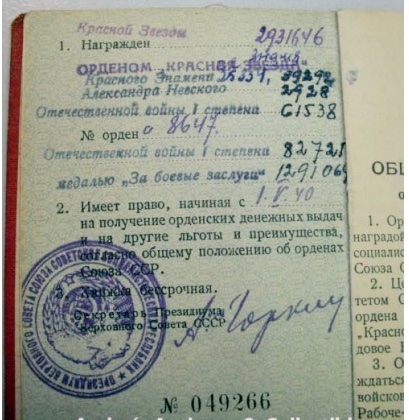 Красной Звезды 2931646
1. Награжден
ОРДЕНОМ „КРАСНАЯ ЗВЕЗДА"
Красного Знамени
Александра Невского 2928
Отечественной войны I степени 61538
№ орден а 8647.
Отечественной войны I степени
медалью „За боевые заслуги"
2. Имеет право, начиная с 1.V.40
на получение орденских денежных выдач
и на другие льготы и преимущества,
согласно общему положению об орденах
Союза ССР.
3. Книжка бессрочная.
Секретарь Президиума
Верховного Совета СССР
А. Горкин
№ 049266
ОБЩ
1. Ор
наградой
социалис
Союза С
2. Це
тетом С
ордена
„Красно
довое К
3. О
ждаться
войсков
Рабоче-